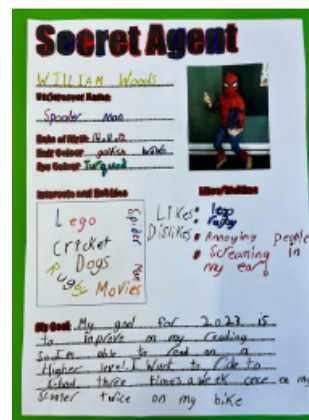 Secret Agent
WILLIAM Woods
Undercover Name
Spooder Man
Date of Birth
Hair Colour
Eye Colour
Interests and Hobbies
Likes/Dislikes
Lego
Spider Man
Cricket
Dogs
Rugby
Movies
Likes: lego
rugby
Dislikes: Annoying people
Screaming in
my ear!
My Goal My goal for 2023 is
to improve on my reading
So I'm able to read on a
Higher level I Want to ride to
School three times a Week once on my
Scooter twice on my bike